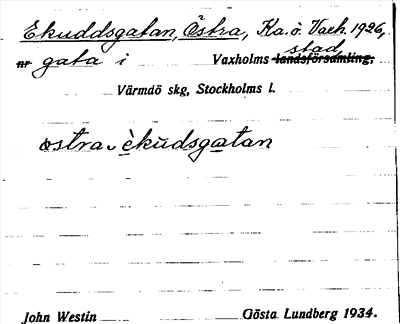 Ekuddsgatan, Östra, Ka.ö. Vaxh. 1926,
nr gata i Vaxholms landsförsamling, stad,
Värmdö skg, Stockholms l.
östra èkūdsgatan
John Westin Gösta Lundberg 1934.